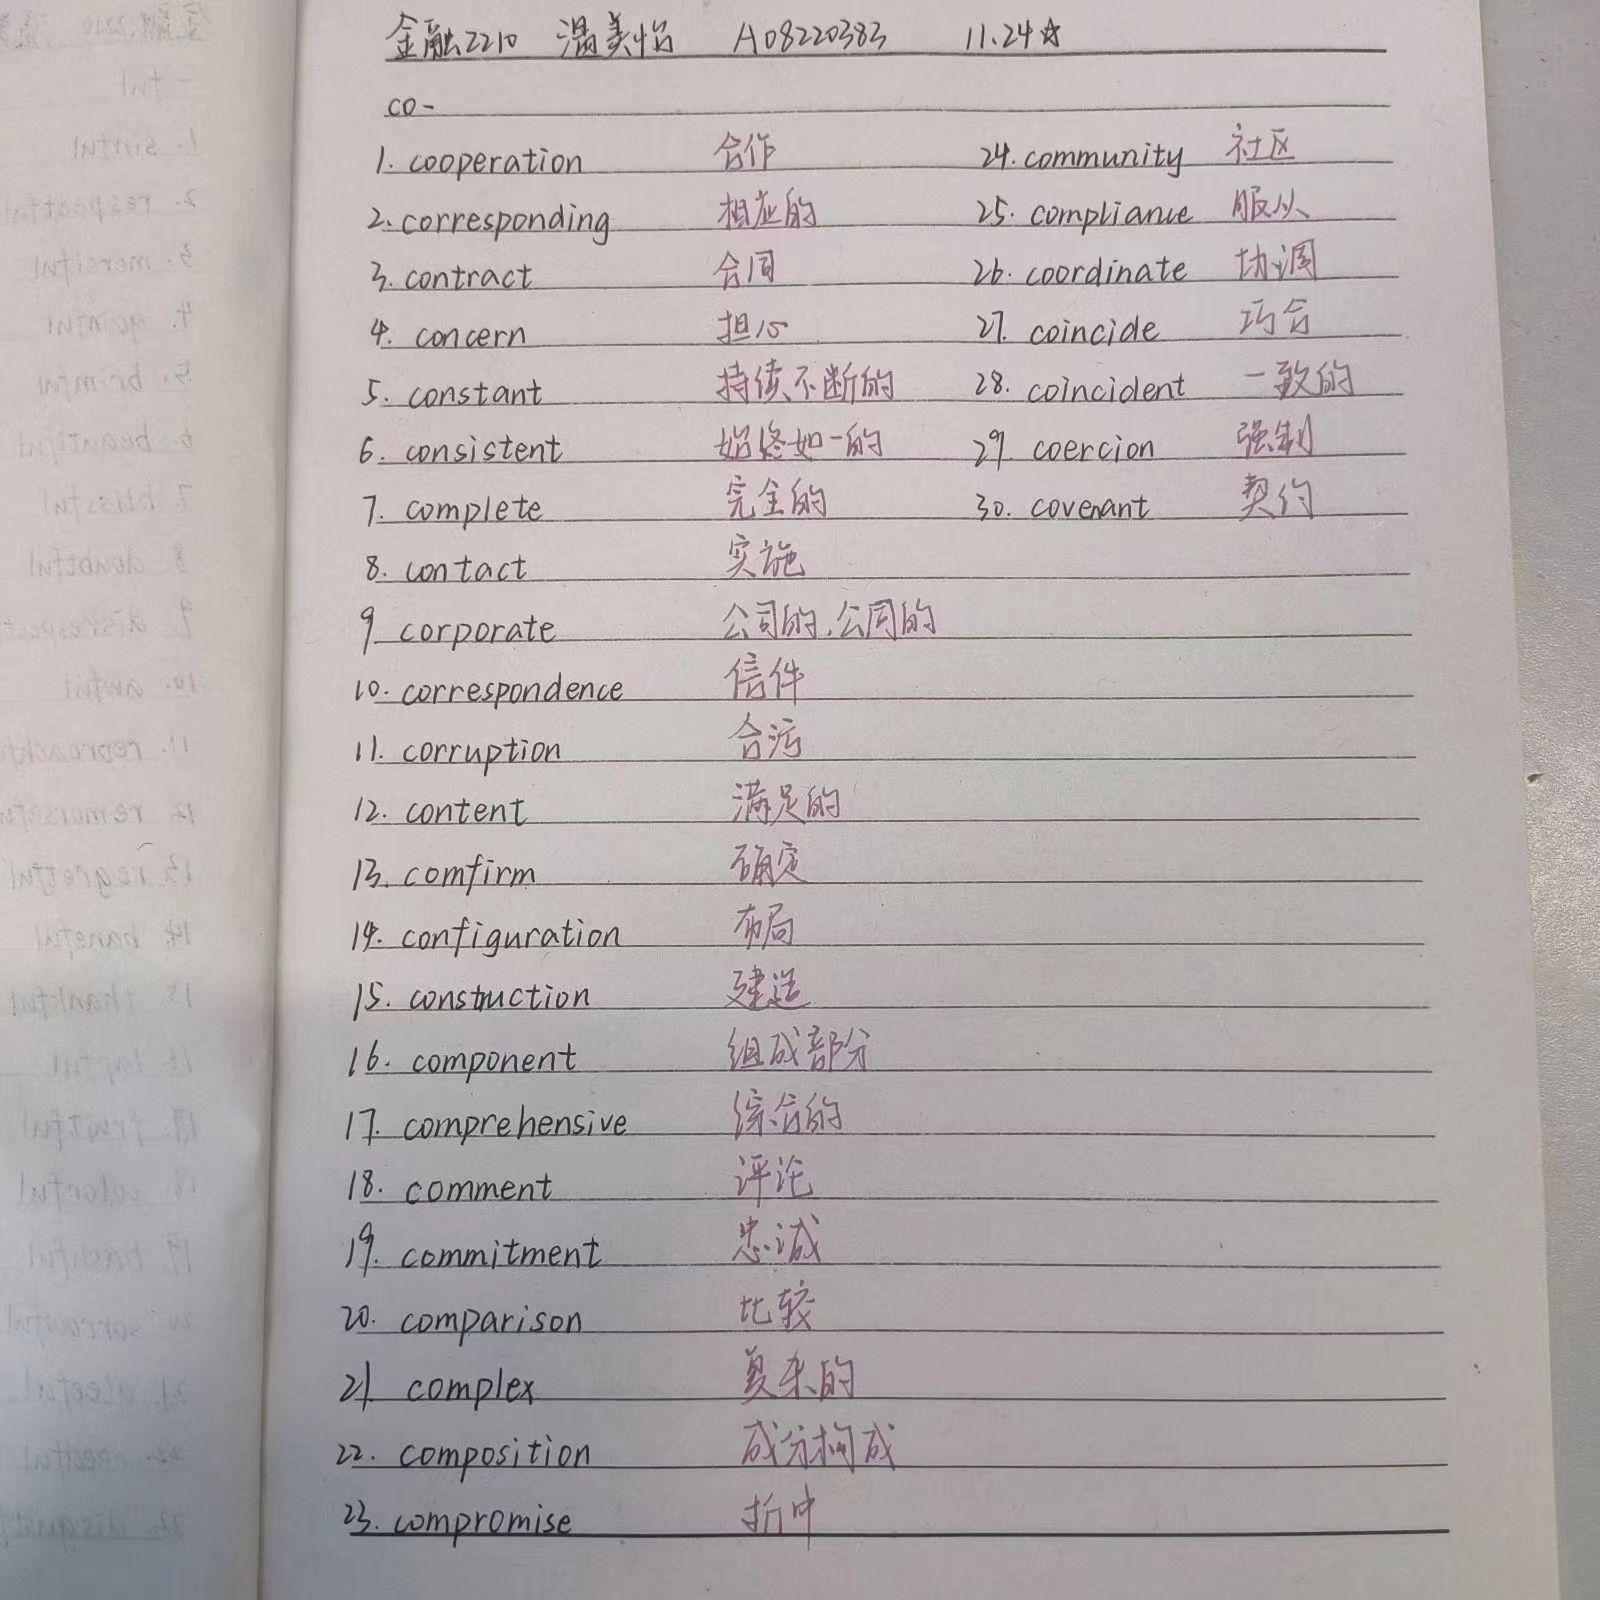 金融2210 温美怡 A08220383 11.24☆
co-
1. cooperation 合作
2. corresponding 相应的
3. contract 合同
4. concern 担心
5. constant 持续不断的
6. consistent 始终如一的
7. complete 完全的
8. contact 实施
9. corporate 公司的,公同的
10. correspondence 信件
11. corruption 合污
12. content 满足的
13. comfirm 确定
14. configuration 布局
15. construction 建造
16. component 组成部分
17. comprehensive 综合的
18. comment 评论
19. commitment 忠诚
20. comparison 比较
21. complex 复杂的
22. composition 成分构成
23. compromise 折中
24. community 社区
25. compliance 服从
26. coordinate 协调
27. coincide 巧合
28. coincident 一致的
29. coercion 强制
30. covenant 契约